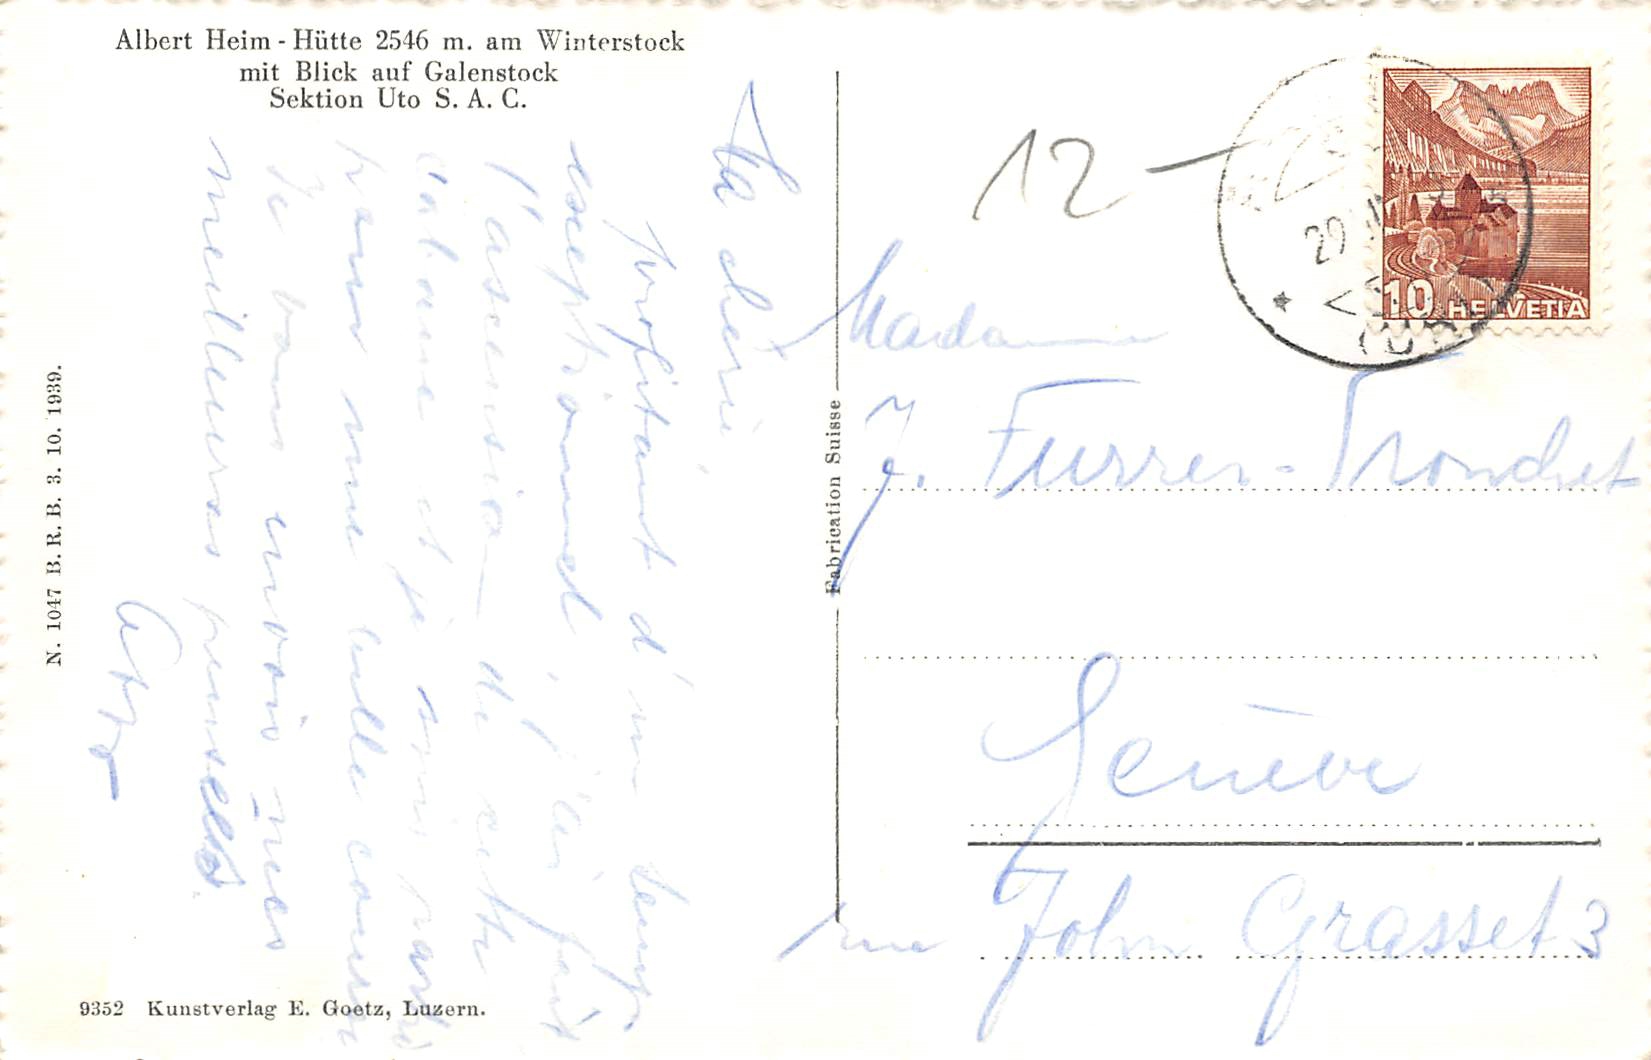 Albert Heim - Hütte 2546 m. am Winterstock
mit Blick auf Galenstock
Sektion Uto S. A. C.
Ma chérie
profitant d'un temps
exceptionnel, j'ai fait
l'ascension de cette
cabane et je suis
dans une belle
Je vous envoie mes
meilleures pensées
Otto
N. 1047 B. R. B. 3. 10. 1939.
9352 Kunstverlag E. Goetz, Luzern.
Fabrication Suisse
12
29
10 HELVETIA
Madame
J. Furrer-Tronchet
Genève
rue John Grasset 3